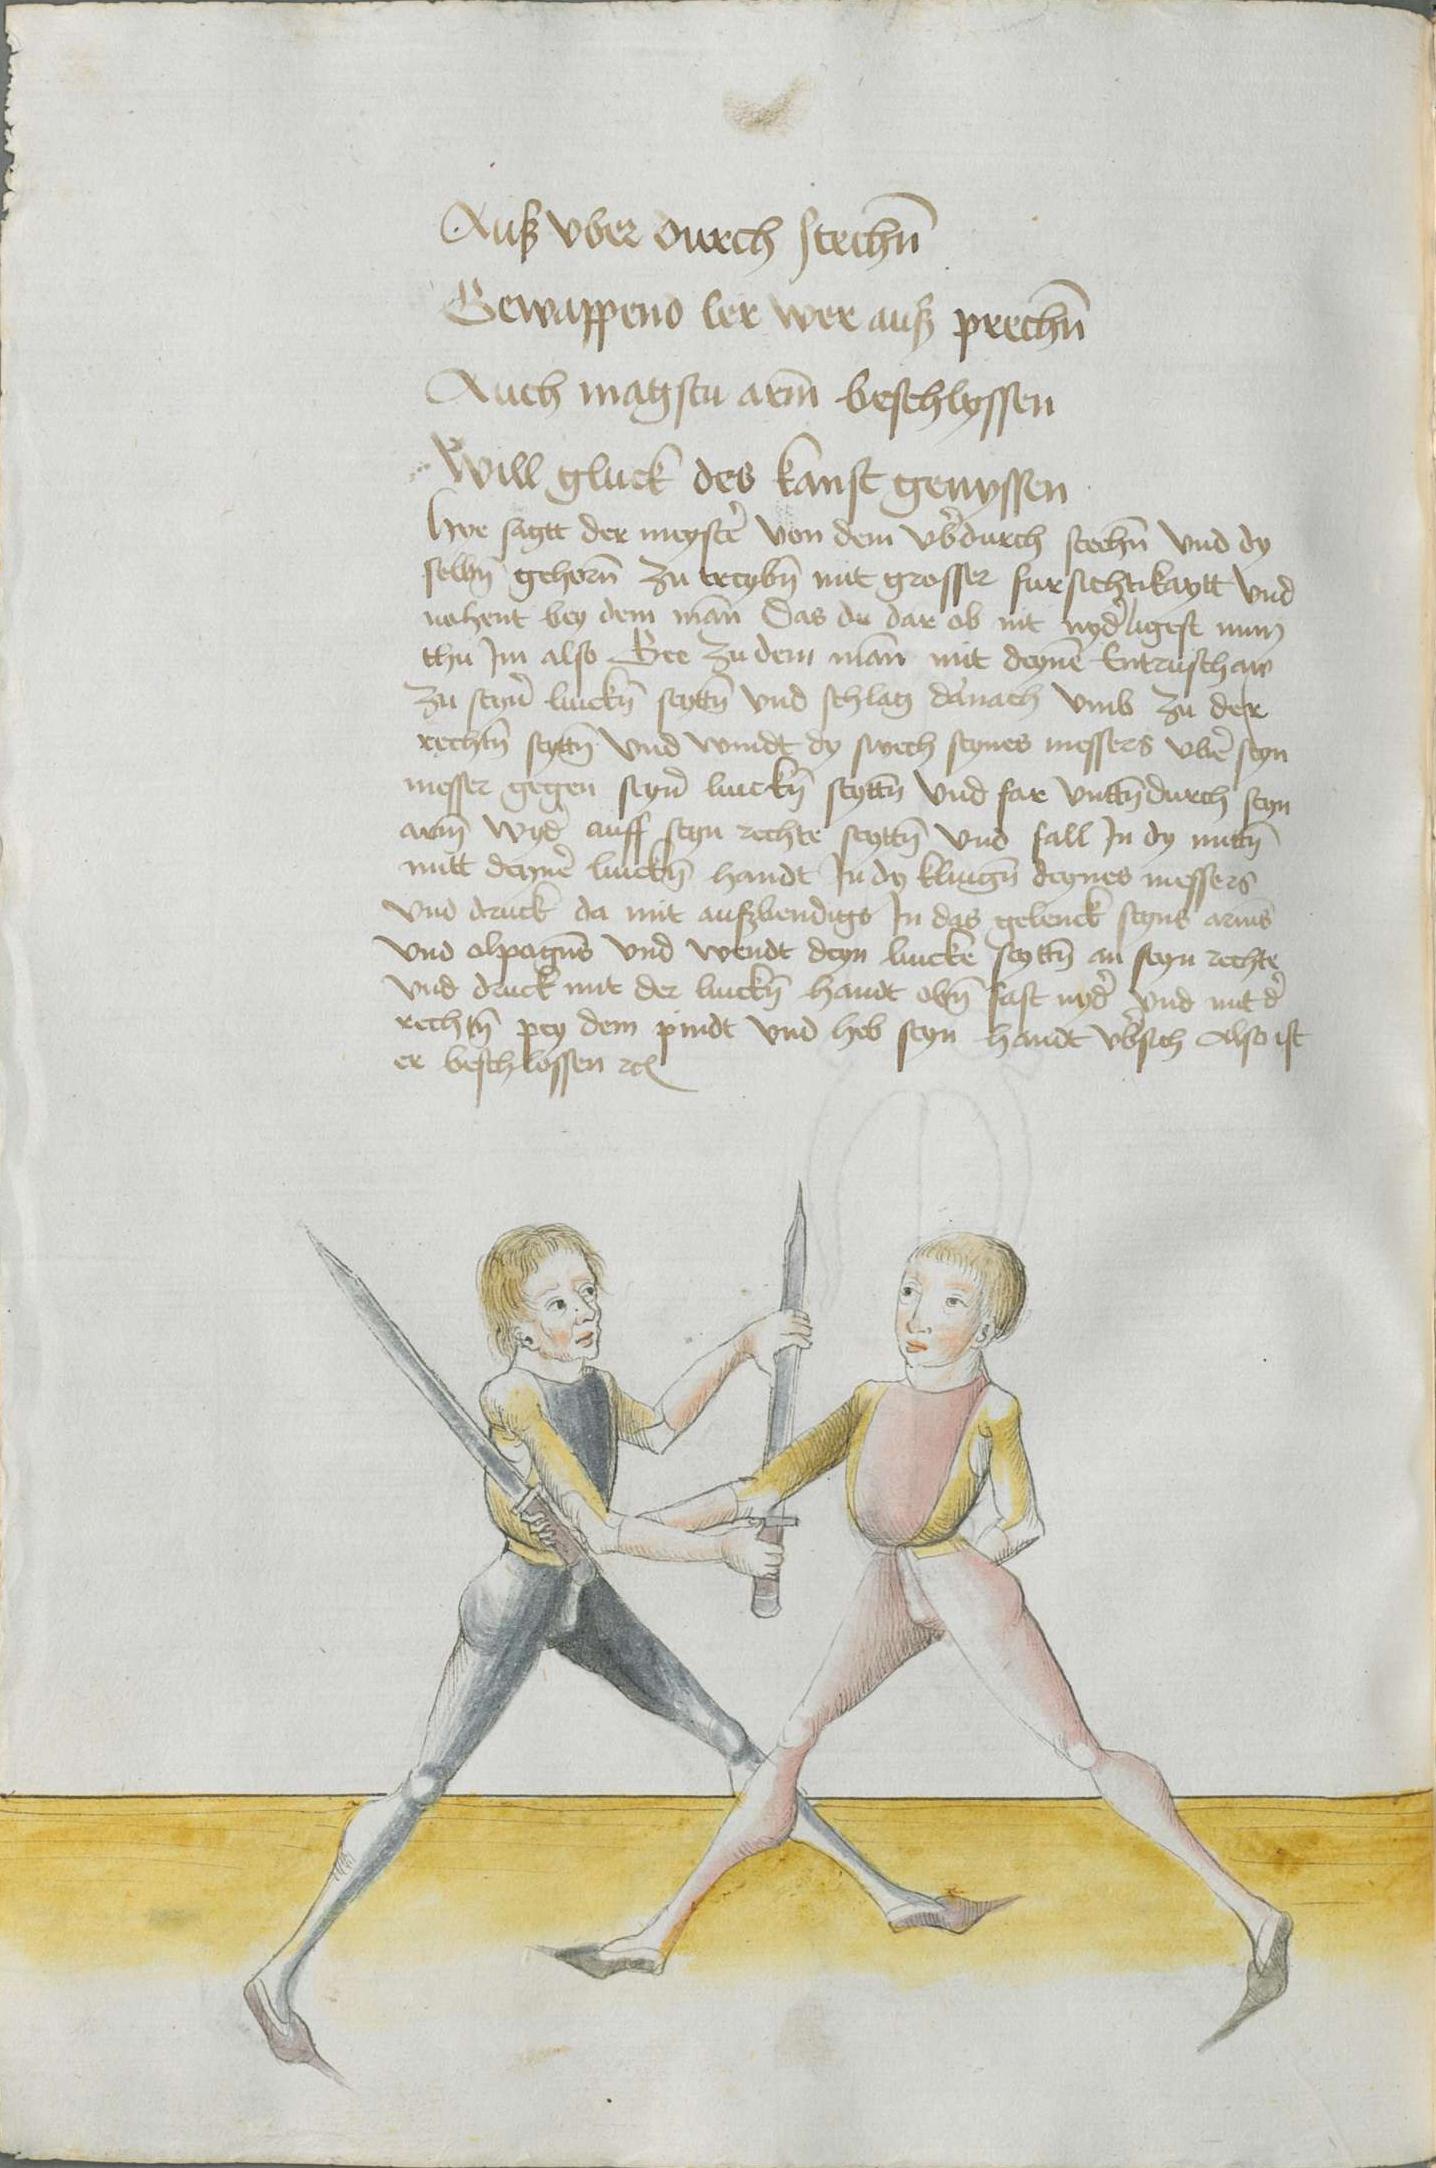 Auß vber durch stechn̄
Gewappend ler wer auß prechn̄
Auch magstu arm̄ beschlyssen
Will gluck des kanst genyssen
Hye sagtt der meyster̄ von dem vb̄durch stechn̄ vnd dy
selbn̄ gehorn̄ zu treybn̄ mit grosser fursichtikaytt vnd
nohent bey dem man̄ Das du dar ob nit nyd̄ligest nun
thu Im also Gee zu dem man̄ mit deynē Entrusthaw
zu seyn̄ linckn̄ seyttn̄ vnd schlag da̓nach vmb zu der
rechtn̄ seyttn̄ vnd windt dy swech seynes messers vbē seyn
messer gegen seyn̄ linckn̄ seyttn̄ vnd far vnttn̄durch seyn
arm̄ wyd̄ auff seyn rechte seyttn̄ vnd fall In dy mittn̄
mitt deynē linckn̄ handt In dy klingn̄ deynes messers
vnd druck da mit außbendigs In das gelenck seyns arms
vnd elpogn̄s vnd wendt deyn lincke seyttn̄ an seyn rechte
vnd druck mit der linckn̄ handt obn̄ fast nyd̄ vnd mit d̄
rechtn̄ pey dem pindt vnd heb seyn handt vb̄sich Also ist
er beschlossen ⁊c